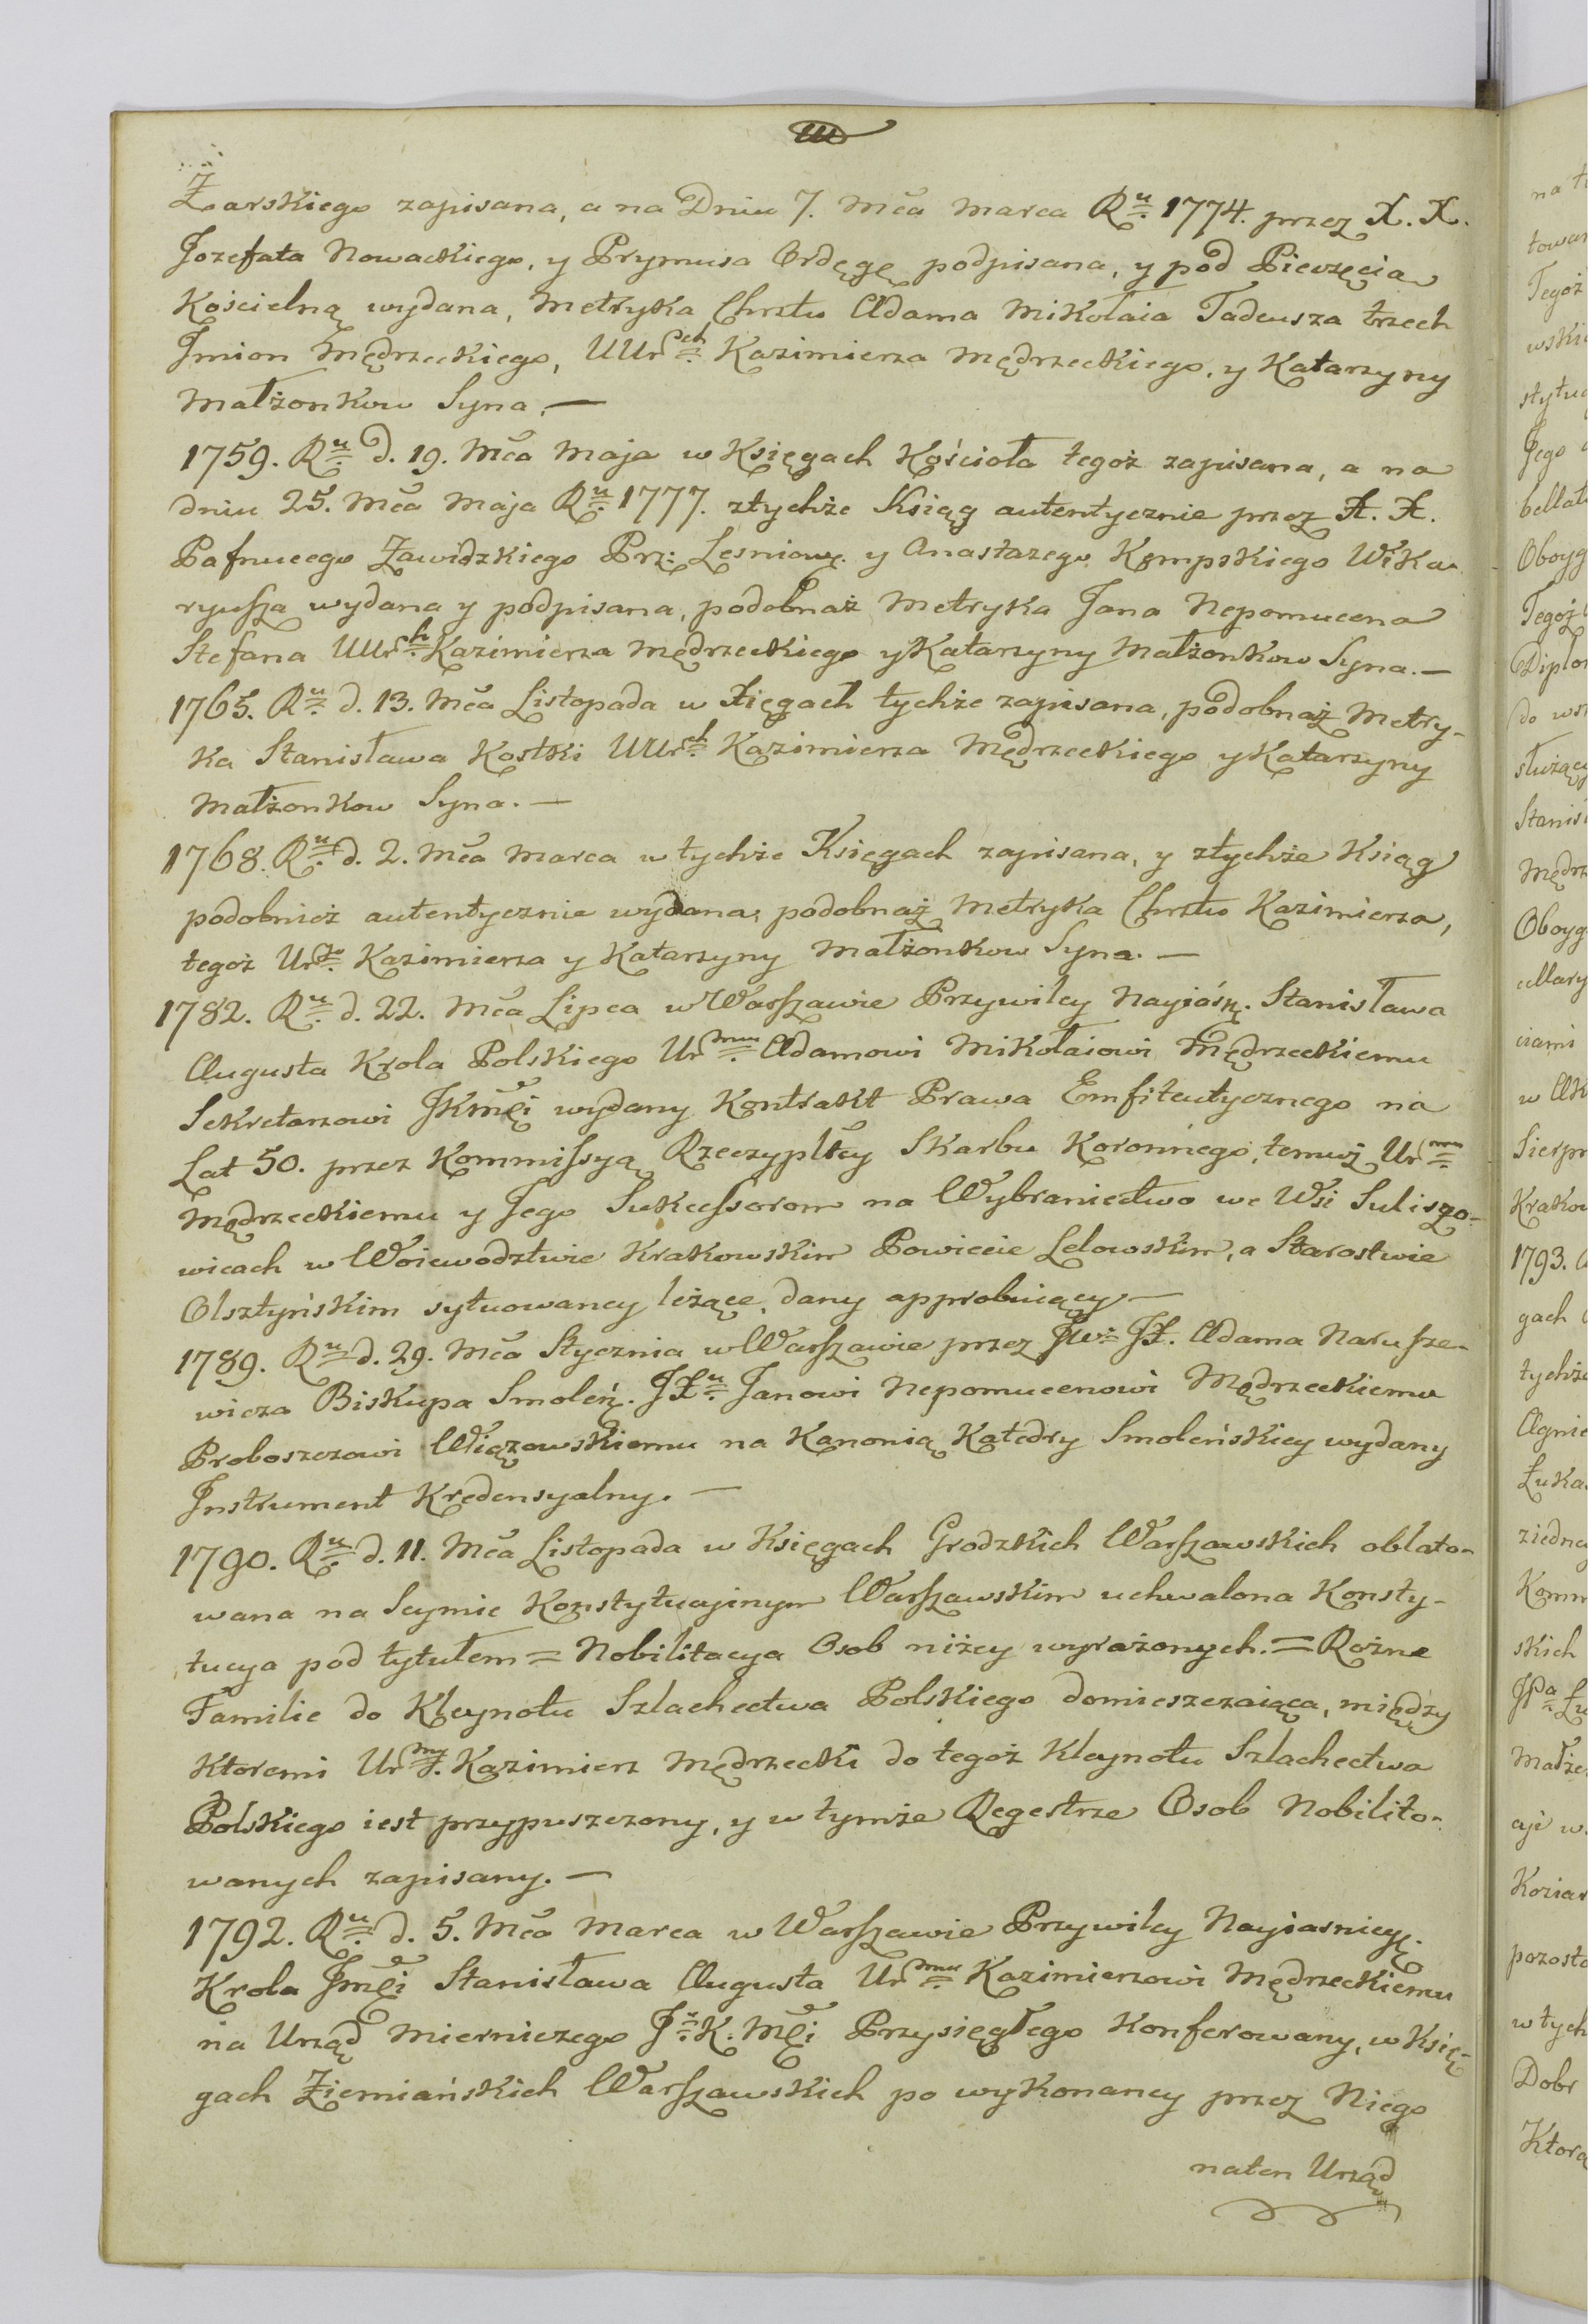 Żarskiego zapisana, a na Dniu 7. Mca Marca Ru 1774. przez X. X.
Jozefata Nowackiego, y Prymusa Ordęgę podpisana, y pod Pieczęcią
Kościelną wydana, Metryka Chrztu Adama Mikołaia Tadeusza trzech
Jmion Mędrzeckiego, UUrch Kazimierza Mędrzeckiego, y Katarzyny
Małżonkow Syna.—
1759. Ru d. 19. Mca Maja w Księgach Kościoła tegoż zapisana, a na
dniu 25. Mca Maja Ru 1777. ztychże Ksiąg autentycznie przez X. X.
Pafnucego Zawidzkiego Prz: Lesniow. y Anastazego Kempskiego Wika-
ryusza wydana y podpisana, podobnaż Metryka Jana Nepomucena
Stefana UUrch Kazimierza Mędrzeckiego y Katarzyny Małżonkow Syna.—
1765. Ru d. 13. Mca Listopada w Xięgach tychże zapisana, podobnaż Metry-
ka Stanisława Kostki UUrch Kazimierza Mędrzeckiego y Katarzyny
Małżonkow Syna.—
1768. Ru d. 2. Mca Marca w tychże Księgach zapisana, y ztychże Ksiąg
podobnież autentycznie wydana, podobnaż Metryka Chrztu Kazimierza,
tegoż Urgo Kazimierza y Katarzyny Małżonkow Syna.—
1782. Ru d. 22. Mca Lipca w Warszawie Przywiley Nayiaśń. Stanisława
Augusta Krola Polskiego Urmu Adamowi Mikołaiowi Mędrzeckiemu
Sekretarzowi JKmći wydany Kontrakt Prawa Emfiteutycznego na
Lat 50. przez Kommissyą Rzeczyplłey Skarbu Koronnego, temuż Urmu
Mędrzeckiemu y Jego Sukcessorom na Wybraniectwo we Wsi Suliszo-
wicach w Woiewodztwie Krakowskim Powiecie Lelowskim, a Starostwie
Olsztyńskim sytuowaney leżące, dany approbuiący—
1789. Ru d. 29. Mca Stycznia w Warszawie przez Jw: JX. Adama Narusze-
wicza Biskupa Smoleń. JXu Janowi Nepomucenowi Mędrzeckiemu
Proboszczowi Wiązowskiemu na Kanonią Katedry Smoleńskiey wydany
Jnstrument Kredensyalny.—
1790. Ru d. 11. Mca Listopada w Księgach Grodzkich Warszawskich oblato-
wana na Seymie Konstytucyinym Warszawskim uchwalona Konsty-
tucya pod tytułem = Nobilitacya Osob niżey wyrażonych. = Rożne
Familie do Kleynotu Szlachectwa Polskiego domieszczaiąca, między
ktoremi Urmż. Kazimierz Mędrzecki do tegoż Kleynotu Szlachectwa
Polskiego iest przypuszczony, y w tymże Regestrze Osob Nobilito-
wanych zapisany.—
1792. Ru d. 5. Mca Marca w Warszawie Przywiley Nayiasniey.
Krola Jmći Stanisława Augusta Urmu Kazimierzowi Mędrzeckiemu
na Urząd Mierniczego J. K. Mći Przysięgłego konferowany, w Księ-
gach Ziemiańskich Warszawskich po wykonaney przez Niego
naten Urząd